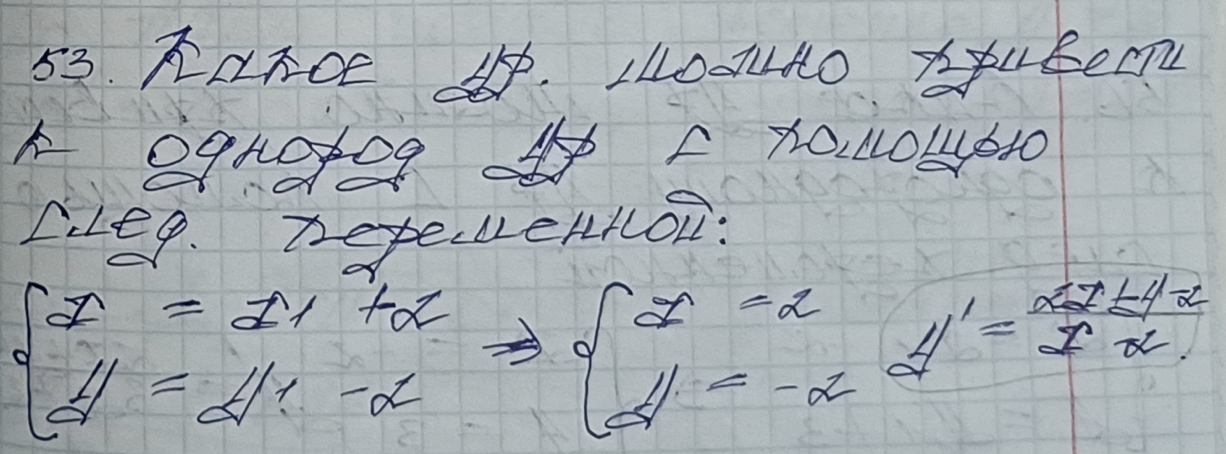 53. Какое ур. можно привести
к однород ур с помощью
след. переменной:
{ x = x1 + 2 => { x = 2 y' = (2x + y - 2) / (x - 2).
{ y = y1 - 2 { y = -2